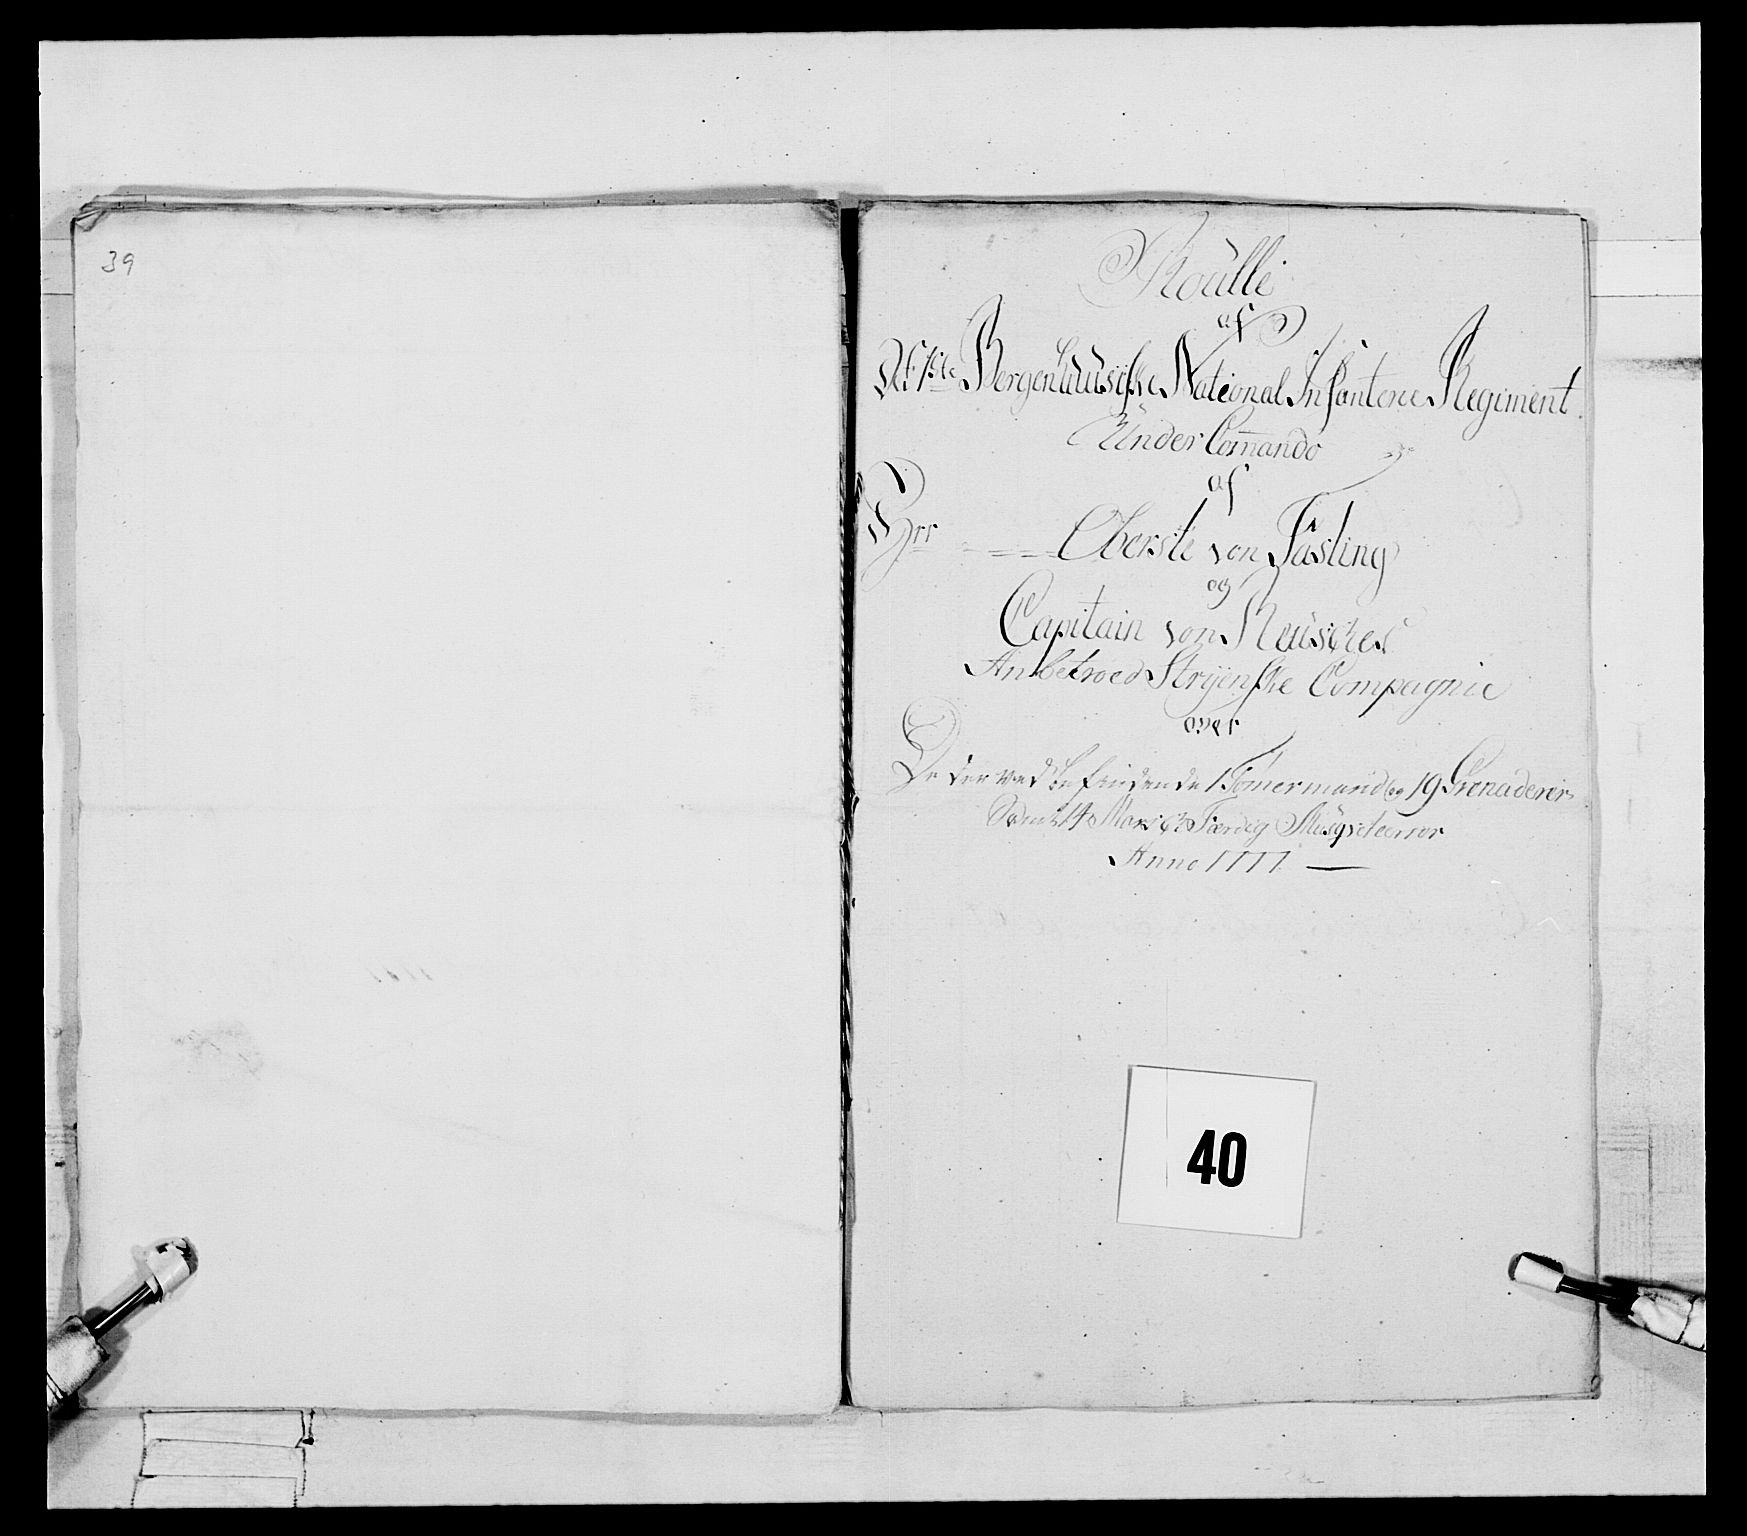 39
Roulle
af
Det 1ste Bergenhuusiske National Infanterie Regiment
Under Com̄ando
af
Hrr Oberste von Fasting
og
Capitain von Reusches
Anbetroed Stryenske Compagnie
over
De der ved befindende 1 Tömermand og 19 Grenaderer
Samt 4 Marsch Færdig Musqveterer
Anno 1777
40